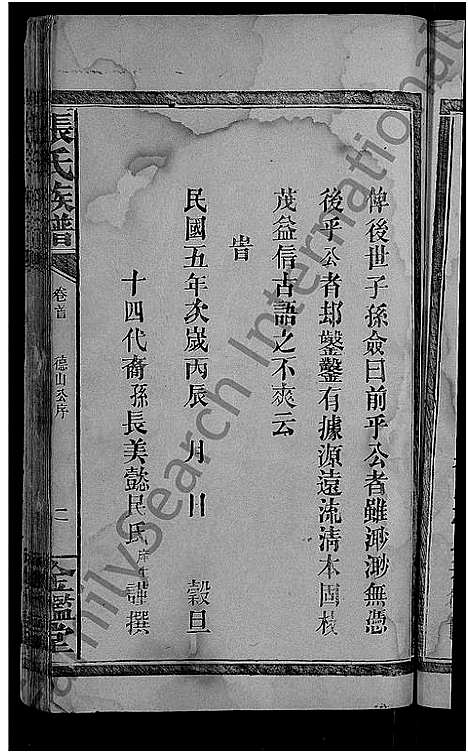 俾後世子孫僉曰前乎公者雖渺渺無憑
後乎公者却鑿鑿有據源遠流清本固枝
茂益信古語之不爽云
旹
民國五年次歲丙辰 月 日 穀旦
十四代裔孫長美懿民氏 謹撰
張氏族譜
卷首
德山公序
二
金鑑堂
FamilySearch International